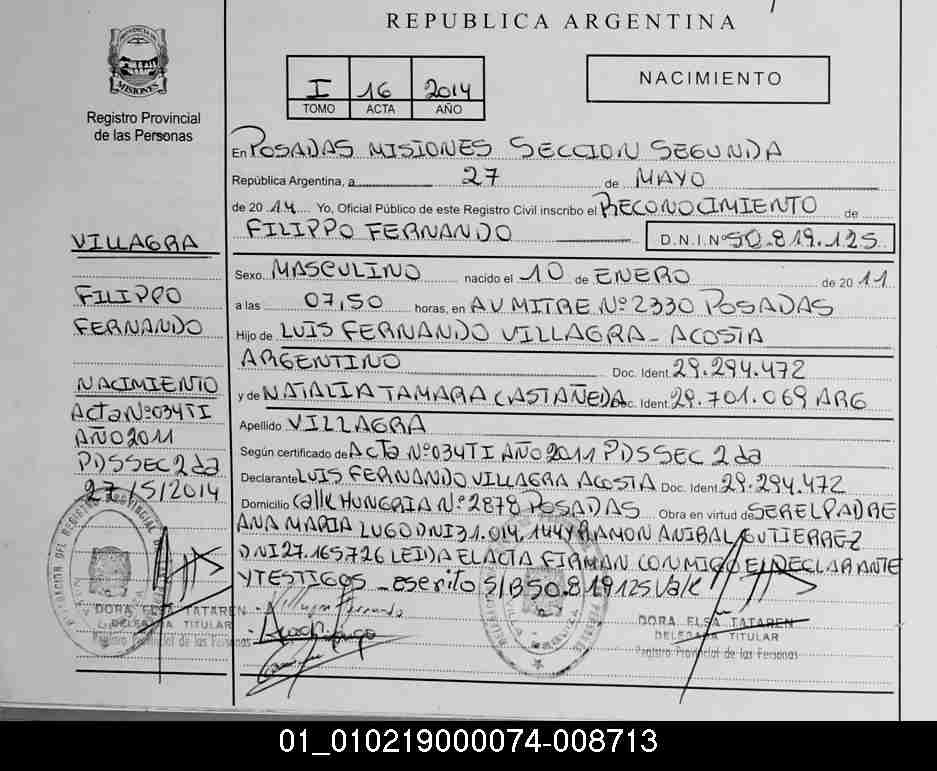 REPUBLICA ARGENTINA
PROVINCIA DE
MISIONES
Registro Provincial
de las Personas
I 16 2014
TOMO ACTA AÑO
NACIMIENTO
En POSADAS MISIONES SECCION SEGUNDA
República Argentina, a 27 de MAYO
de 2014 Yo, Oficial Público de este Registro Civil inscribo el RECONOCIMIENTO de
FILIPPO FERNANDO D.N.I.Nº 50.819.125
Sexo MASCULINO nacido el 10 de ENERO de 2011
a las 07,50 horas, en AV MITRE Nº 2330 POSADAS
Hijo de LUIS FERNANDO VILLAGRA ACOSTA
ARGENTINO Doc. Ident. 29.294.472
y de NATALIA TAMARA CASTAÑEDA Doc. Ident. 29.701.069 ARG
Apellido VILLAGRA
Según certificado de Acta Nº 034TI AÑO 2011 PDSSEC 2da
Declarante LUIS FERNANDO VILLAGRA ACOSTA Doc. Ident. 29.294.472
Domicilio Calle HUNGRIA Nº 2878 POSADAS Obra en virtud de SER EL PADRE
ANA MARIA LUGO DNI 31.014.144 Y RAMON ANIBAL GUTIERREZ
DNI 27.165726 LEIDA EL ACTA FIRMAN CONMIGO EL DECLARANTE
Y TESTIGOS escrito S/B 50.819125 Vale
Villagra Fernando
DORA ELSA TATAREN
DELEGADA TITULAR
Registro Provincial de las Personas
VILLAGRA
FILIPPO
FERNANDO
NACIMIENTO
Acta Nº 034TI
AÑO 2011
PDSSEC 2da
27/5/2014
DORA ELSA TATAREN
DELEGADA TITULAR
Registro Provincial de las Personas
01_010219000074-008713